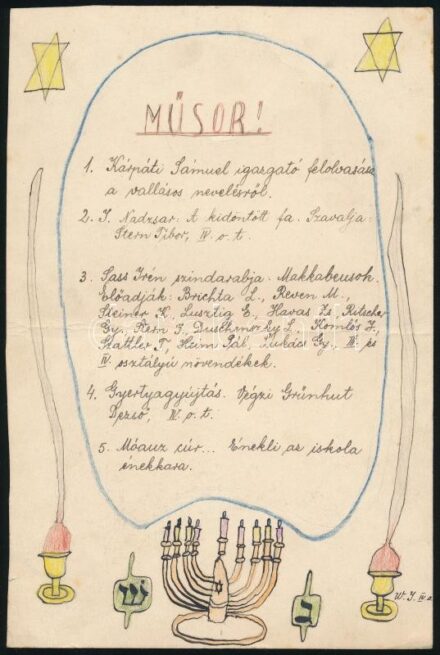 MŰSOR!
1. Kárpáti Sámuel igazgató felolvasása
a vallásos nevelésről.
2. J. Nadzsar: A kidöntött fa. Szavalja:
Stern Tibor, IV. o. t.
3. Sass Irén színdarabja: Makkabeusok.
Előadják: Brichta L., Reven M.,
Steiner K., Lusztig E., Havas Zs.
Gy., Stern T., L., Komlós J.,
Stattler T., Heim Pál, Lukács Gy., III. és
IV. osztályú növendékek.
4. Gyertyagyújtás. Végzi Grünhut
Dezső, IV. o. t.
5. Móauz cúr... Énekli az iskola
énekkara.
ש
נ
W. J. IV. o.